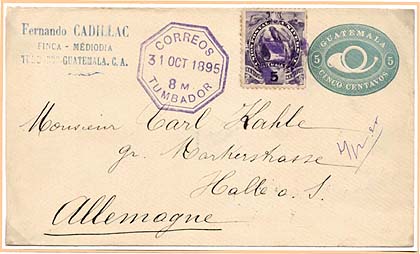 Fernando CADILLAC
FINCA - MÉDIODIA
GUATEMALA. C. A.
CORREOS
31 OCT 1895
8 M
TUMBADOR
5
GUATEMALA
5 5
CINCO CENTAVOS
Monsieur Carl Kahle
gr. Markerstrasse
Halle a. S.
Allemagne